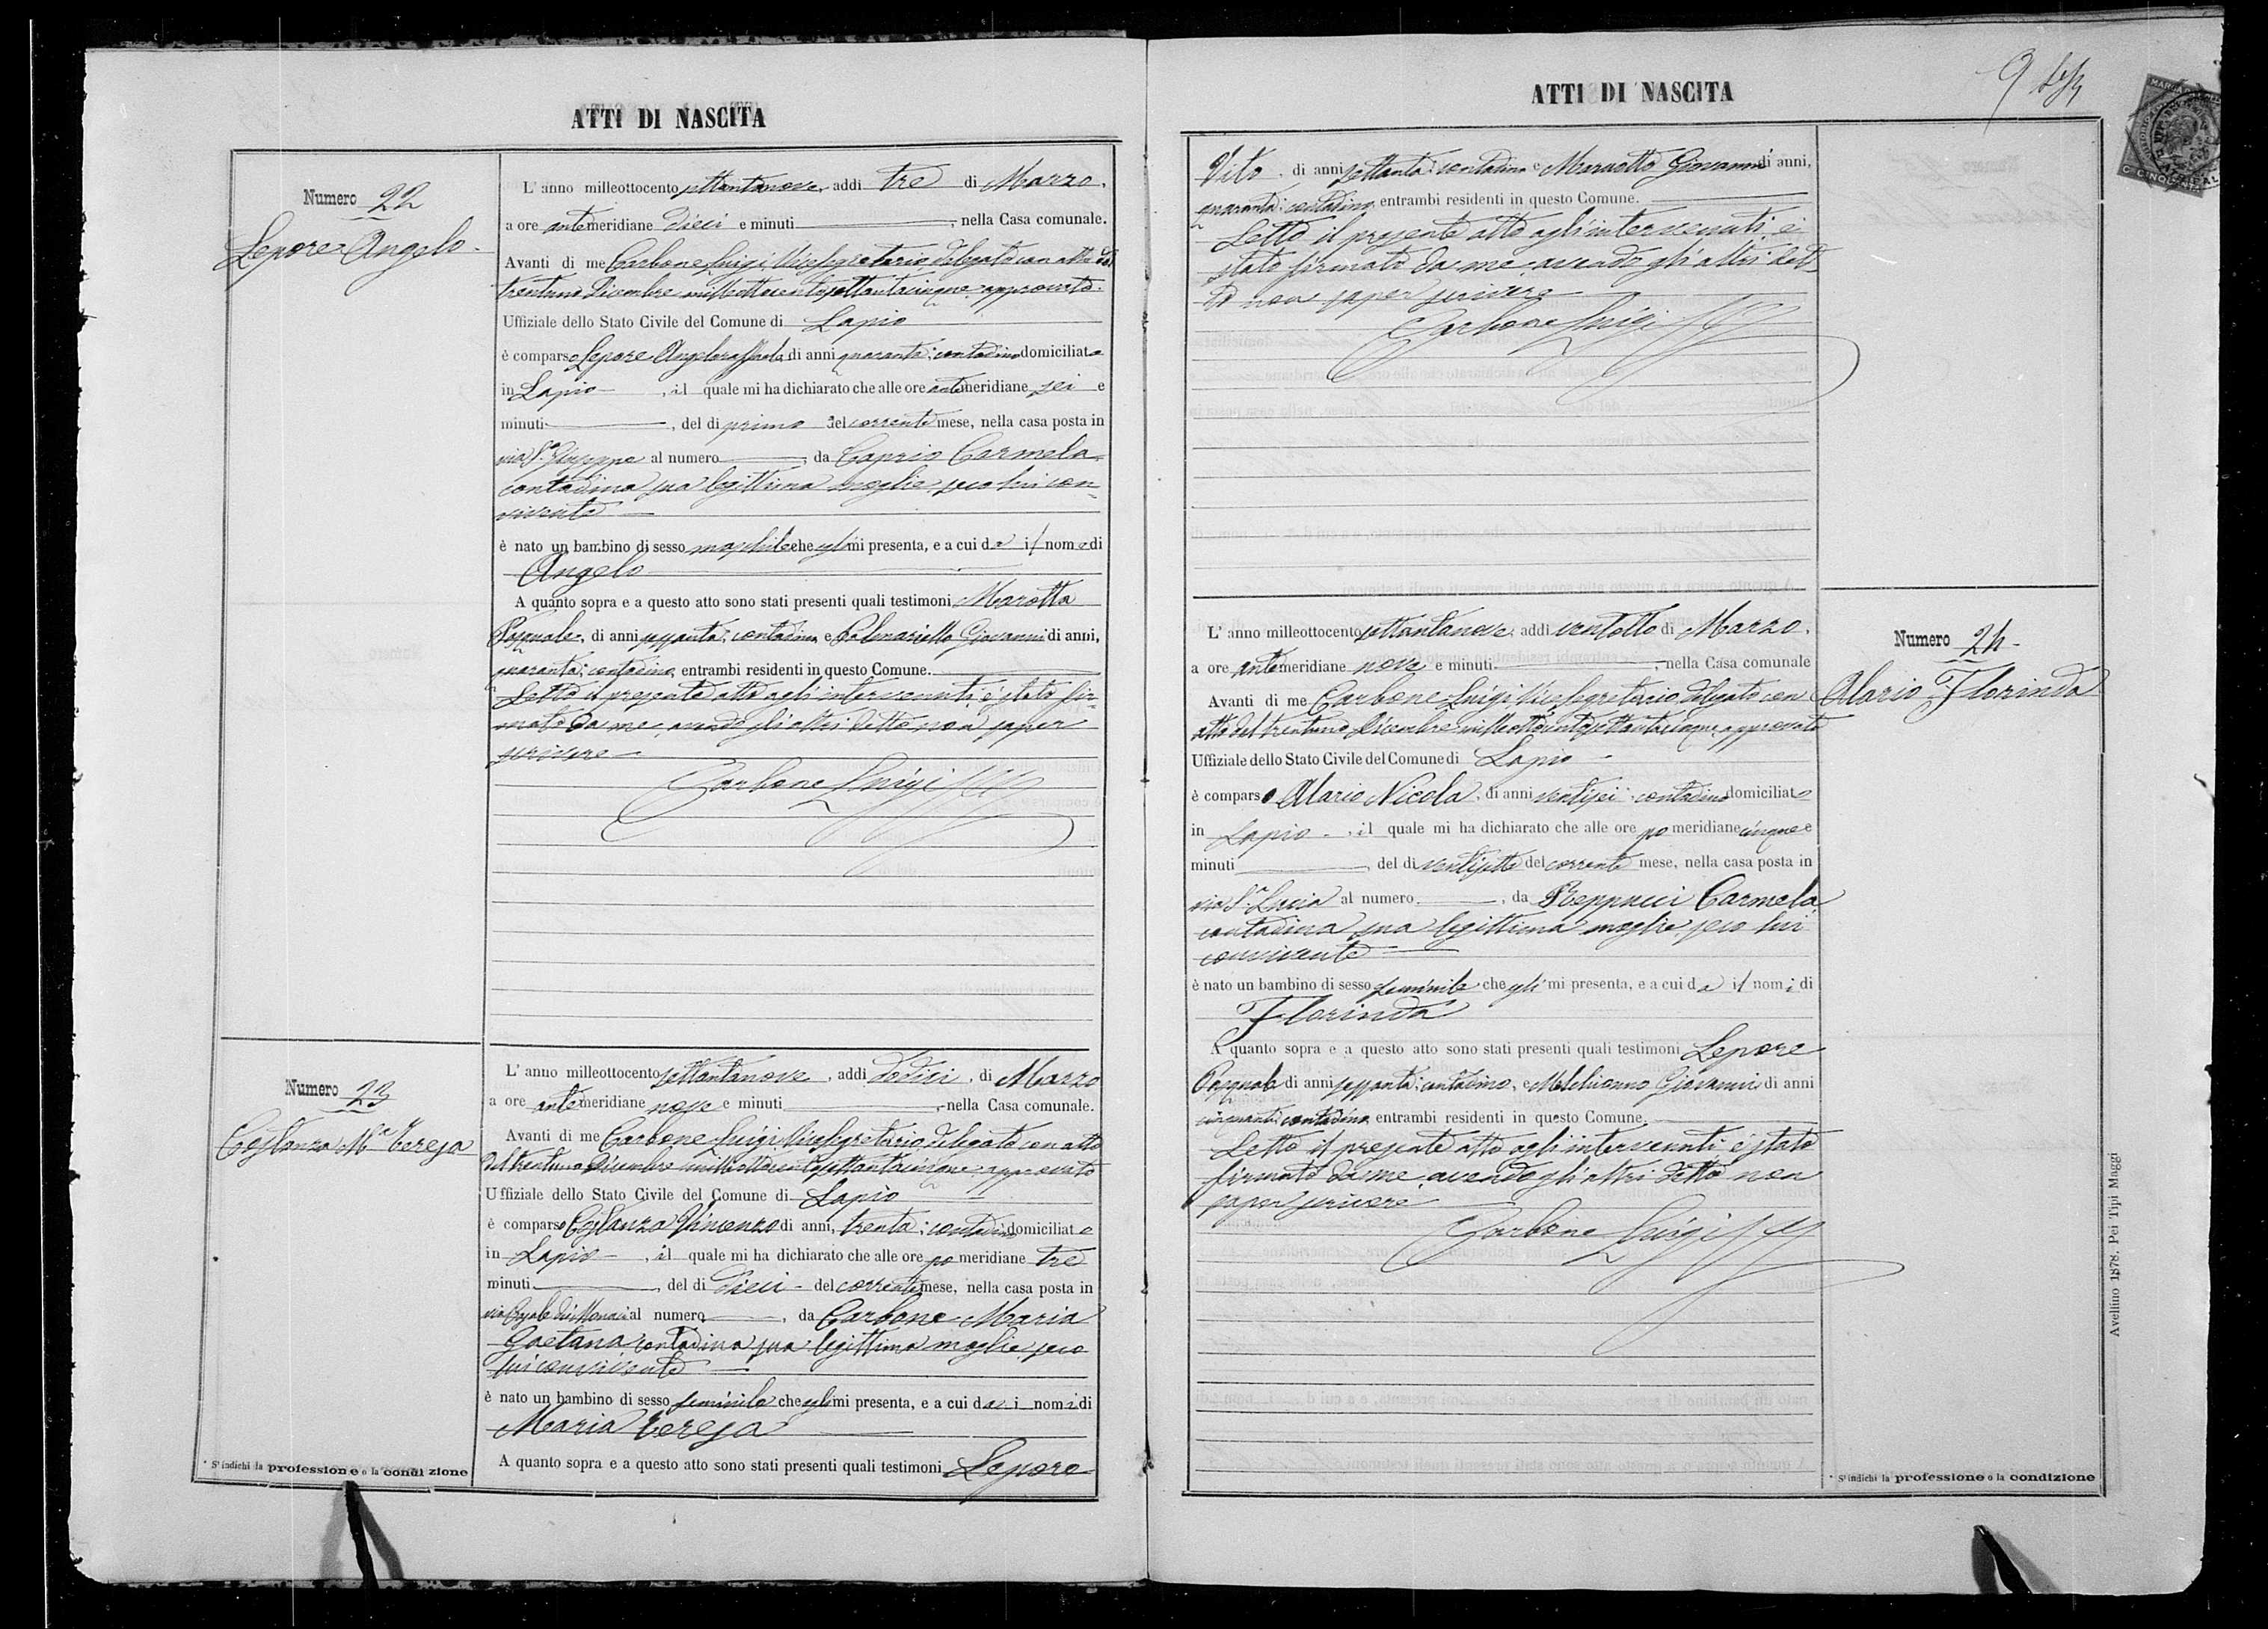 ATTI DI NASCITA
Numero 22
Lepore Angelo
L' anno milleottocento settantanove, addi tre di Marzo,
a ore antemeridiane dieci e minuti, nella Casa comunale.
Avanti di me Carbone Luigi Vicesegretario delegato con atto del
trentuno Dicembre milleottocentosettantacinque approvato
Uffiziale dello Stato Civile del Comune di Lapio
è comparso Lepore Angeloraffaele, di anni quaranta; contadino domiciliato
in Lapio, il quale mi ha dichiarato che alle ore antemeridiane sei e
minuti, del di primo del corrente mese, nella casa posta in
via S. Giuseppe al numero, da Caprio Carmela
contadina sua legittima moglie, seco lui con-
vivente
è nato un bambino di sesso maschile che egli mi presenta, e a cui da il nome di
Angelo
A quanto sopra e a questo atto sono stati presenti quali testimoni Marotta
Pasquale, di anni sessanta; contadino, e Palmariello Giovanni di anni,
quaranta; contadino, entrambi residenti in questo Comune.
Letto il presente atto agli intervenuti, è stato fir-
mato da me, avendo gli altri detto non saper
scrivere
Carbone Luigi
Numero 23
Costanza Mª Teresa
L' anno milleottocento settantanove, addi dodici, di Marzo
a ore antemeridiane nove e minuti, nella Casa comunale.
Avanti di me Carbone Luigi Vicesegretario delegato con atto
del trentuno Dicembre milleottocentosettantacinque approvato
Uffiziale dello Stato Civile del Comune di Lapio
è comparso Costanza Vincenzo di anni, trenta; contadino domiciliato
in Lapio, il quale mi ha dichiarato che alle ore pomeridiane tre
minuti, del di dieci del corrente mese, nella casa posta in
via al numero, da Carbone Maria
Gaetana contadina sua legittima moglie, seco
lui convivente
è nato un bambino di sesso feminile che egli mi presenta, e a cui da i nomi di
Maria Teresa
A quanto sopra e a questo atto sono stati presenti quali testimoni Lepore
* S'indichi la professione o la condizione
ATTI DI NASCITA
9
Vito, di anni settanta; contadino e Giovanni di anni,
quaranta; contadino, entrambi residenti in questo Comune.
Letto il presente atto agli intervenuti, è
stato firmato da me, avendo gli altri det-
to non saper scrivere
Carbone Luigi
L' anno milleottocento settantanove, addi ventotto di Marzo,
a ore antemeridiane nove e minuti, nella Casa comunale
Avanti di me Carbone Luigi Vicesegretario delegato con
atto del trentuno Dicembre milleottocentosettantacinque approvato
Uffiziale dello Stato Civile del Comune di Lapio
è comparso Alario Nicola, di anni ventisei; contadino domiciliato
in Lapio, il quale mi ha dichiarato che alle ore pomeridiane cinque e
minuti, del di ventisette del corrente mese, nella casa posta in
via Sª Lucia al numero, da Reppucci Carmela
contadina sua legittima moglie, seco lui
convivente
è nato un bambino di sesso feminile che egli mi presenta, e a cui da il nomi di
Florinda
A quanto sopra e a questo atto sono stati presenti quali testimoni Lepore
Pasquale di anni sessanta; contadino, e Giovanni di anni
cinquanta contadino, entrambi residenti in questo Comune.
Letto il presente atto agli intervenuti, è stato
firmato da me, avendo gli altri detto non
saper scrivere
Carbone Luigi
Numero 24
Alario Florinda
* S'indichi la professione o la condizione
Avellino 1878. Pei Tipi Maggi